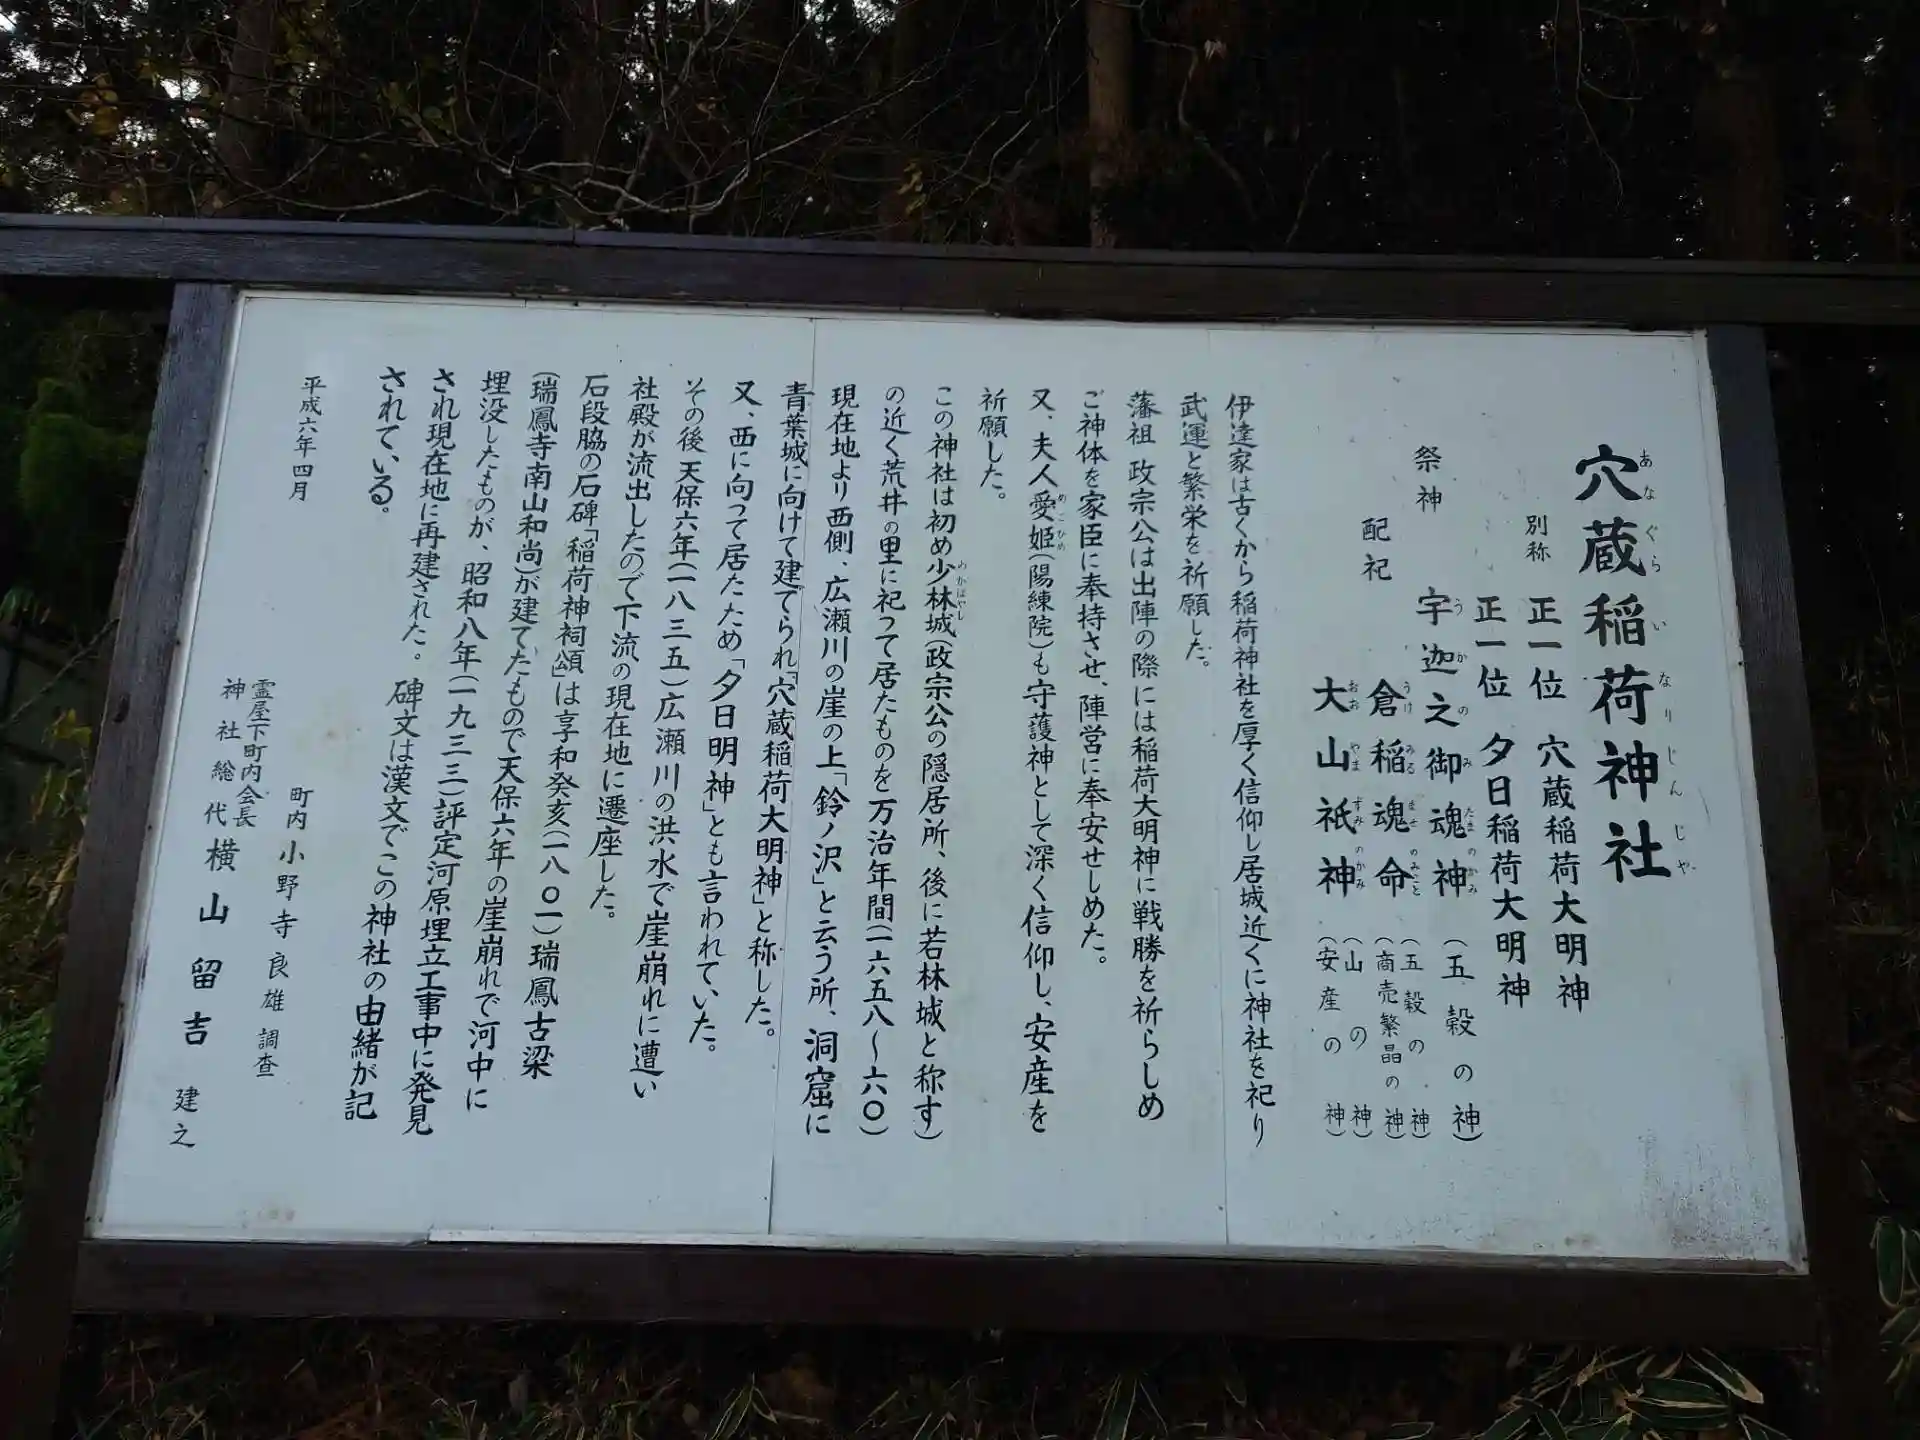 穴蔵稲荷神社
あなぐらいなりじんじゃ
別称 正一位 穴蔵稲荷大明神
正一位 夕日稲荷大明神
祭神 宇迦之御魂神 (五穀の神)
うかのみたまのかみ
配祀 倉稲魂命 (五穀の神)
うけみるませのみこと
(商売繁晶の神)
大山祇神 (山の神)
おおやまずみのかみ
(安産の神)
伊達家は古くから稲荷神社を厚く信仰し居城近くに神社を祀り
武運と繁栄を祈願した。
藩祖 政宗公は出陣の際には稲荷大明神に戦勝を祈らしめ
ご神体を家臣に奉持させ、陣営に奉安せしめた。
又、夫人愛姫(陽練院)も守護神として深く信仰し、安産を
めごひめ
祈願した。
この神社は初め少林城(政宗公の隠居所、後に若林城と称す)
めかばやし
の近く荒井の里に祀って居たものを万治年間(一六五八〜六〇)
現在地より西側、広瀬川の崖の上「鈴ノ沢」と云う所、洞窟に
青葉城に向けて建てられ「穴蔵稲荷大明神」と称した。
又、西に向って居たため「夕日明神」とも言われていた。
その後天保六年(一八三五)広瀬川の洪水で崖崩れに遭い
社殿が流出したので下流の現在地に遷座した。
石段脇の石碑「稲荷神祠頌」は享和癸亥(一八〇一)瑞鳳古梁
(瑞鳳寺南山和尚)が建てたもので天保六年の崖崩れで河中に
埋没したものが、昭和八年(一九三三)評定河原埋立工事中に発見
され現在地に再建された。碑文は漢文でこの神社の由緒が記
されている。
平成六年四月
町内 小野寺良雄 調査
霊屋下町内会長
神社総代 横山留吉 建之